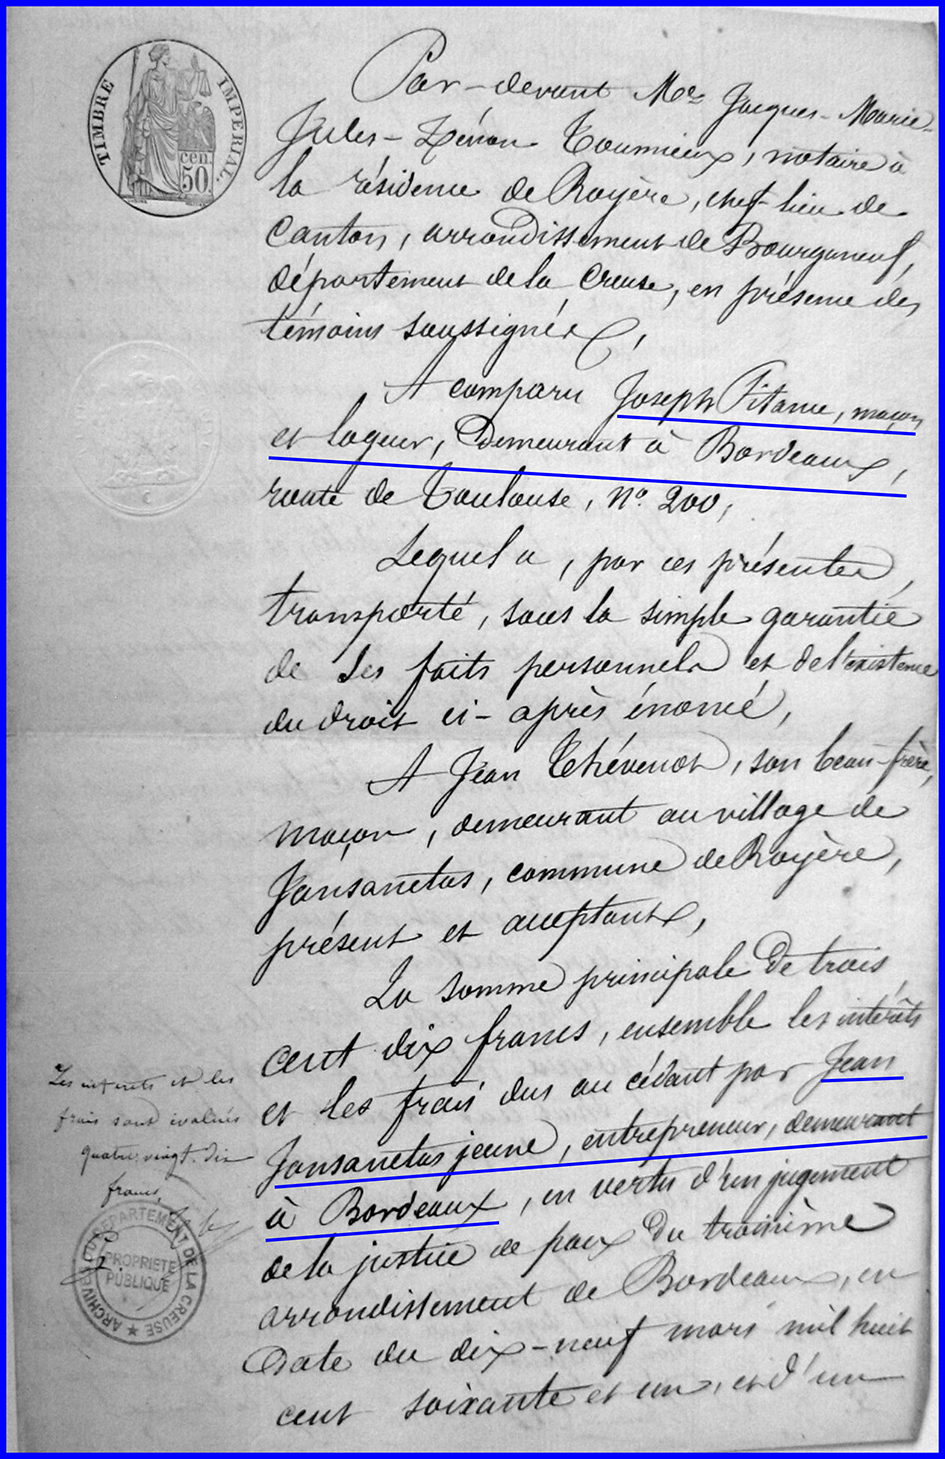 TIMBRE IMPERIAL
cen.
50
Par-devant Me Jacques-Marie-
Jules-Zénon Toumieux, notaire à
la résidence de Royère, chef-lieu de
Canton, arrondissement de Bourganeuf,
département de la Creuse, en présence des
témoins soussignés,
A comparu Joseph Pitance, maçon
et logeur, demeurant à Bordeaux,
route de Toulouse, No 200,
Lequel a, par ces présentes,
transporté, sous la simple garantie
de ses faits personnels et de l'existence
du droit ci-après énoncé,
A Jean Thévenot, son beau-frère,
maçon, demeurant au village de
Jansanetas, commune de Royère,
présent et acceptant,
La somme principale de trois
cent dix francs, ensemble les intérêts
et les frais dus au cédant par Jean
Jansanetas jeune, entrepreneur, demeurant
à Bordeaux, en vertu d'un jugement
de la justice de paix du troisième
arrondissement de Bordeaux, en
date du dix-neuf mars mil huit
cent soixante et un, et d'un
Les intérêts et les
frais sont évalués
quatre-vingt-dix
francs.
ARCHIVES DU DEPARTEMENT DE LA CREUSE
PROPRIETE
PUBLIQUE